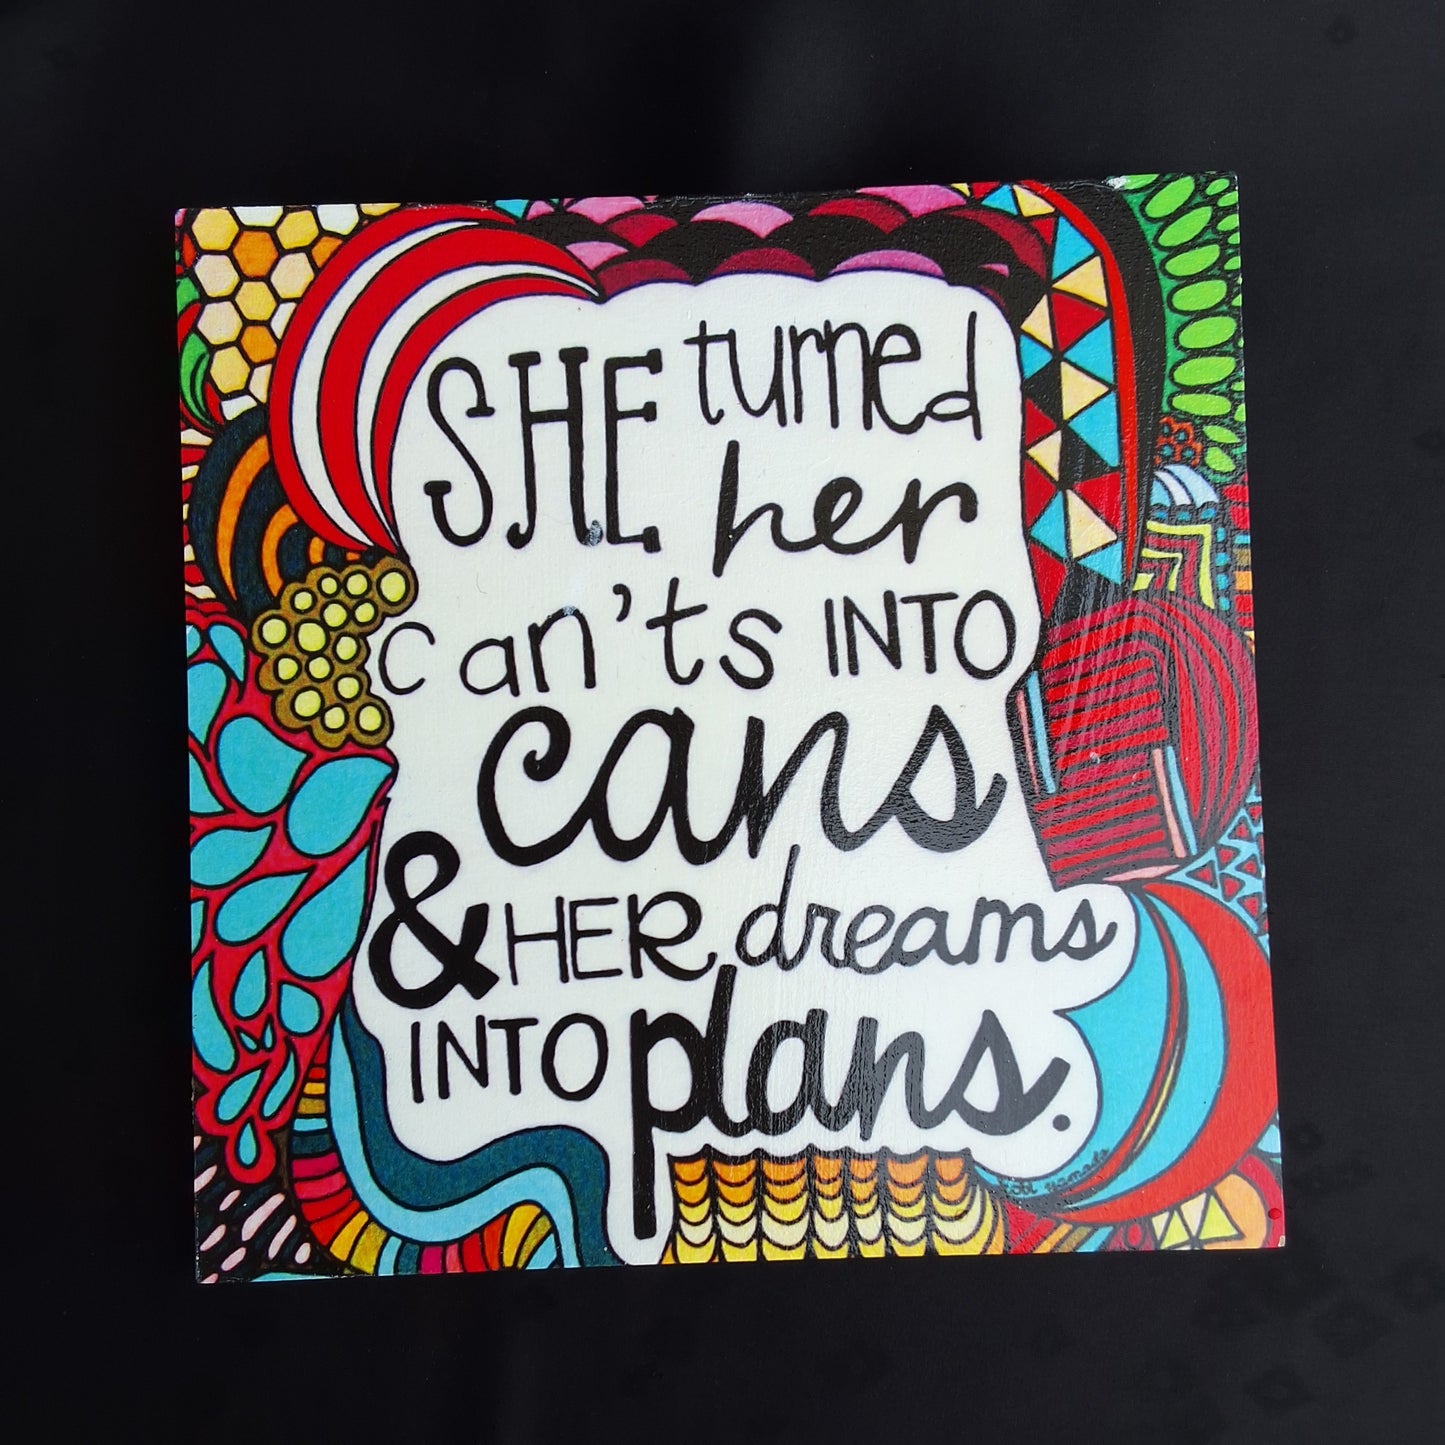 SHE turned
her
can'ts INTO
cans
& HER dreams
INTO plans.
kobi yamada